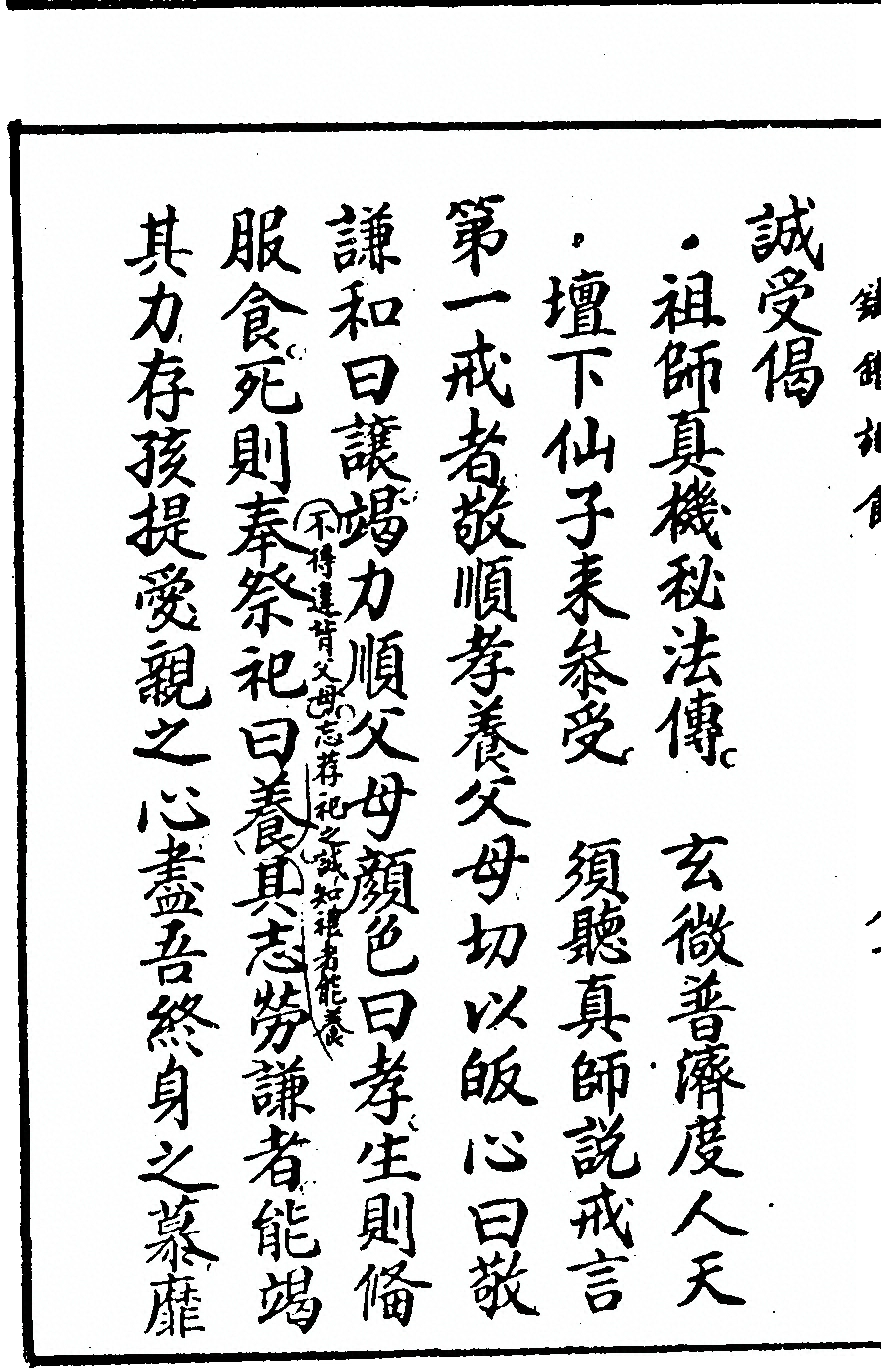 誠受偈
祖師真機秘法傳 玄微普濟度人天
壇下仙子来叅受 須聽真師説戒言
第一戒者敬順孝養父母切以皈心曰敬
謙和曰讓竭力順父母顏色曰孝生則俻
不得違背父母志荐祀之誠知禮者能養
服食死則奉祭祀曰養其志勞謙者能竭
其力存孩提愛親之心盡吾終身之慕靡